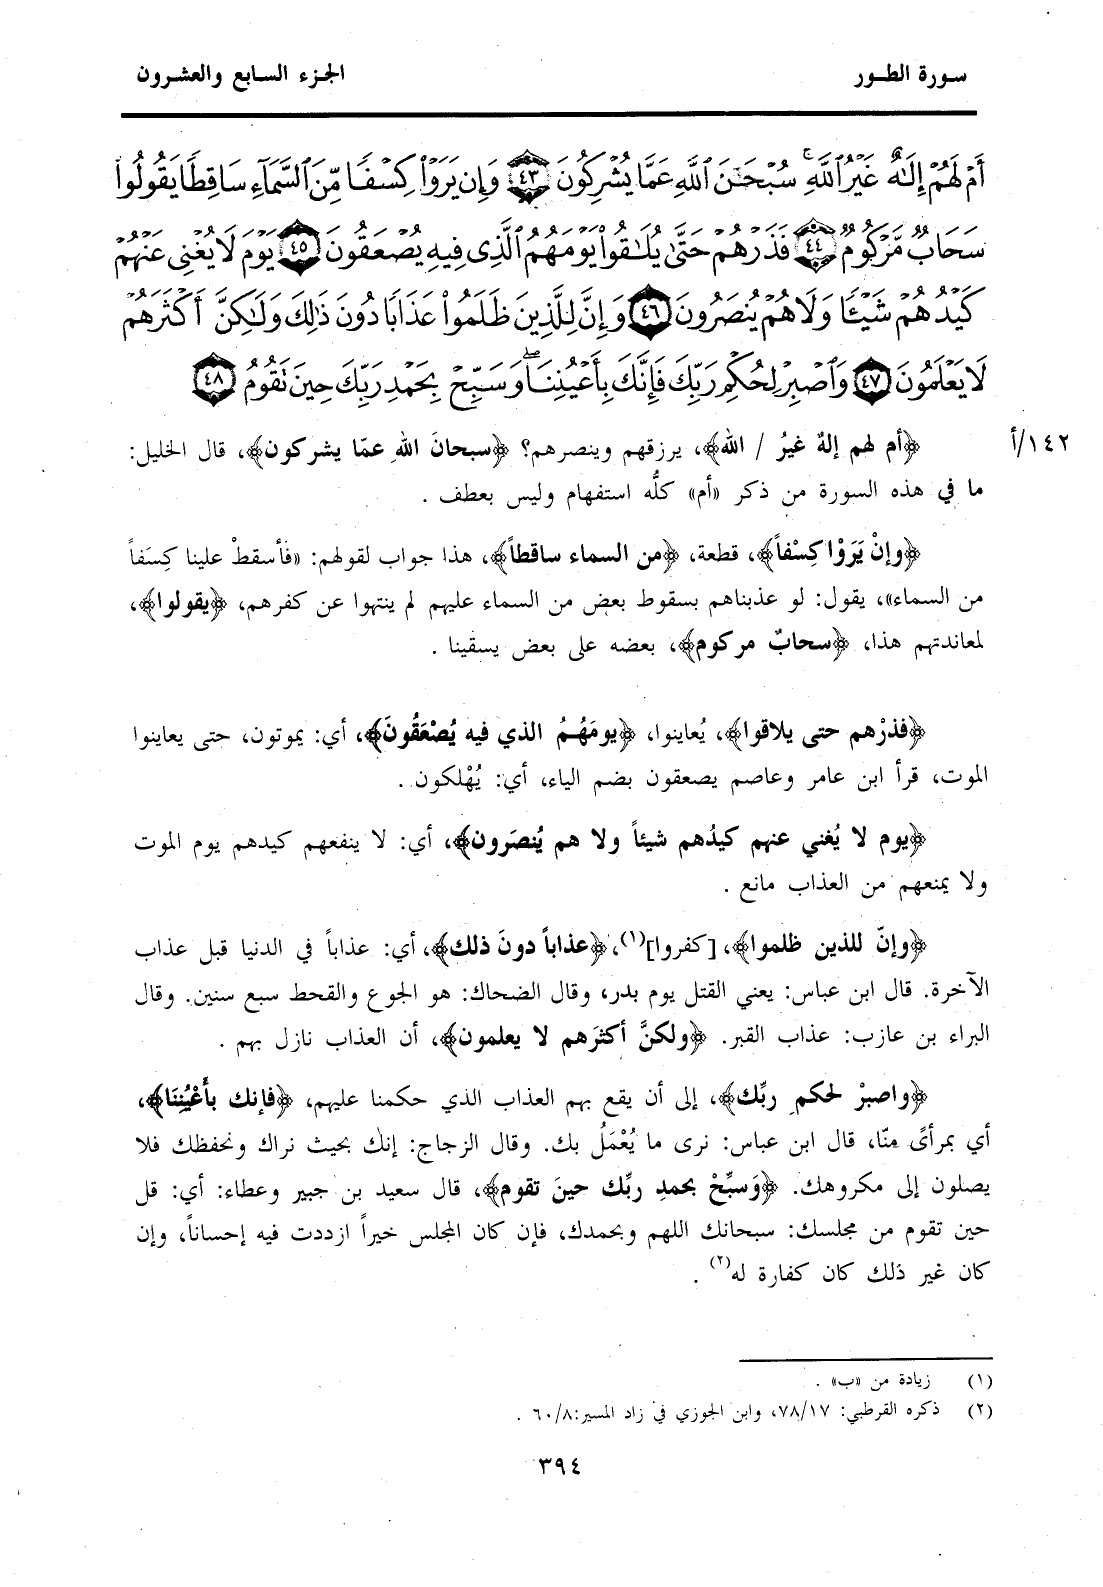 سورة الطور
الجزء السابع والعشرون
أَمْ لَهُمْ إِلَٰهٌ غَيْرُ ٱللَّهِ ۚ سُبْحَٰنَ ٱللَّهِ عَمَّا يُشْرِكُونَ ٤٣ وَإِن يَرَوْا۟ كِسْفًا مِّنَ ٱلسَّمَآءِ سَاقِطًا يَقُولُوا۟
سَحَابٌ مَّرْكُومٌ ٤٤ فَذَرْهُمْ حَتَّىٰ يُلَٰقُوا۟ يَوْمَهُمُ ٱلَّذِى فِيهِ يُصْعَقُونَ ٤٥ يَوْمَ لَا يُغْنِى عَنْهُمْ
كَيْدُهُمْ شَيْـًٔا وَلَا هُمْ يُنصَرُونَ ٤٦ وَإِنَّ لِلَّذِينَ ظَلَمُوا۟ عَذَابًا دُونَ ذَٰلِكَ وَلَٰكِنَّ أَكْثَرَهُمْ
لَا يَعْلَمُونَ ٤٧ وَٱصْبِرْ لِحُكْمِ رَبِّكَ فَإِنَّكَ بِأَعْيُنِنَا ۖ وَسَبِّحْ بِحَمْدِ رَبِّكَ حِينَ تَقُومُ ٤٨
١٤٢/أ
﴿أم لهم إلهٌ غيرُ / الله﴾، يرزقهم وينصرهم؟ ﴿سبحانَ اللهِ عمّا يشركون﴾، قال الخليل:
ما في هذه السورة من ذكر «أم» كلُّه استفهام وليس بعطف .
﴿وإنْ يَرَوْا كِسْفاً﴾، قطعة، ﴿من السماء ساقطاً﴾، هذا جواب لقولهم: «فأسقطْ علينا كِسَفاً
من السماء»، يقول: لو عذبناهم بسقوط بعض من السماء عليهم لم ينتهوا عن كفرهم، ﴿يقولوا﴾،
لمعاندتهم هذا، ﴿سحابٌ مركوم﴾، بعضه على بعض يسقينا .
﴿فذرْهم حتى يلاقوا﴾، يُعاينوا، ﴿يومَهُمُ الذي فيه يُصْعَقُونَ﴾، أي: يموتون، حتى يعاينوا
الموت، قرأ ابن عامر وعاصم يصعقون بضم الياء، أي: يُهْلكون .
﴿يوم لا يُغني عنهم كيدُهم شيئاً ولا هم يُنصَرون﴾، أي: لا ينفعهم كيدهم يوم الموت
ولا يمنعهم من العذاب مانع .
﴿وإنّ للذين ظلموا﴾، [كفروا](١)، ﴿عذاباً دونَ ذلك﴾، أي: عذاباً في الدنيا قبل عذاب
الآخرة. قال ابن عباس: يعني القتل يوم بدر، وقال الضحاك: هو الجوع والقحط سبع سنين. وقال
البراء بن عازب: عذاب القبر. ﴿ولكنَّ أكثرَهم لا يعلمون﴾، أن العذاب نازل بهم .
﴿واصبرْ لحكمِ ربِّك﴾، إلى أن يقع بهم العذاب الذي حكمنا عليهم، ﴿فإنك بأَعْيُننَا﴾،
أي بمرأىً منّا، قال ابن عباس: نرى ما يُعْمَلُ بك. وقال الزجاج: إنك بحيث نراك ونحفظك فلا
يصلون إلى مكروهك. ﴿وَسبِّحْ بحمدِ ربِّك حينَ تقوم﴾، قال سعيد بن جبير وعطاء: أي: قل
حين تقوم من مجلسك: سبحانك اللهم وبحمدك، فإن كان المجلس خيراً ازددت فيه إحساناً، وإن
كان غير ذلك كان كفارة له(٢) .
(١) زيادة من «ب» .
(٢) ذكره القرطبي: ٧٨/١٧، وابن الجوزي في زاد المسير:٦٠/٨ .
٣٩٤